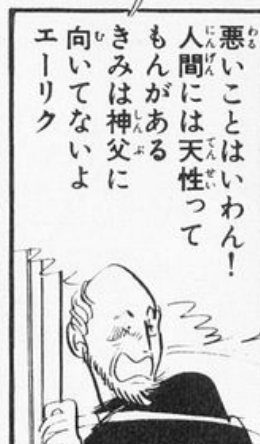 悪いことはいわん!
人間には天性って
もんがある
きみは神父に
向いてないよ
エーリク